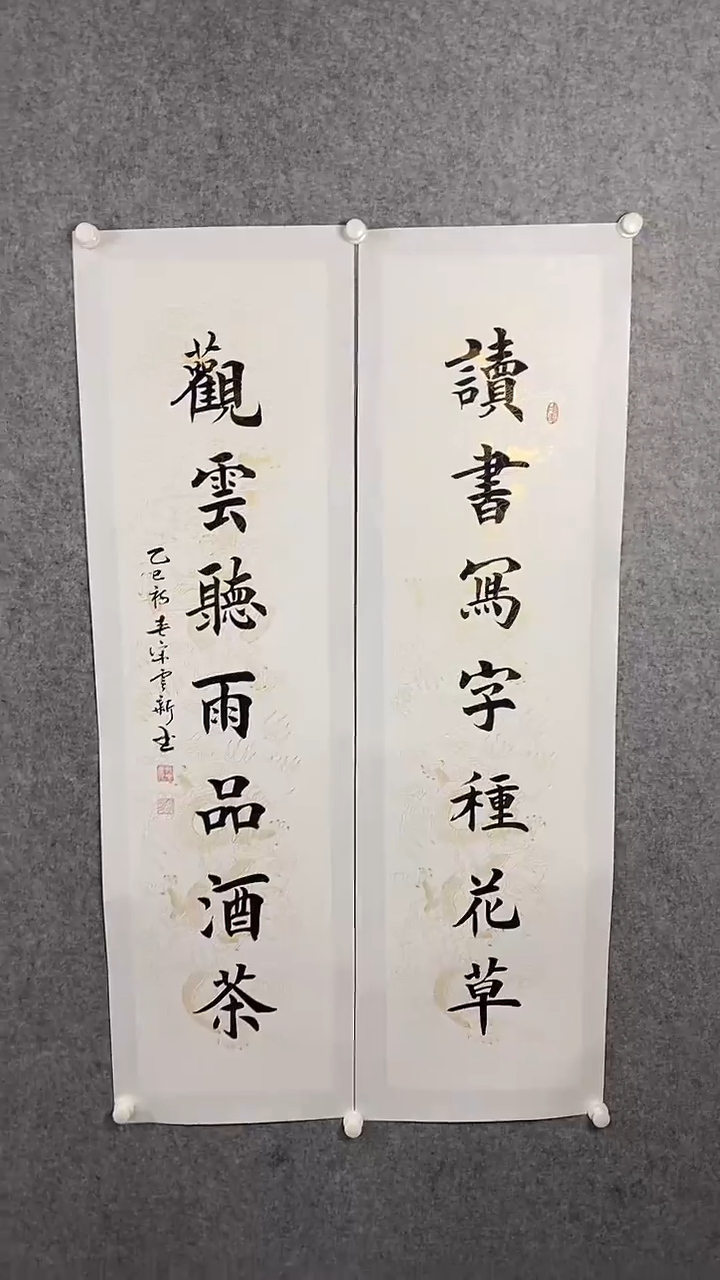 讀書寫字種花草
觀雲聽雨品酒茶
乙巳初春宋雲新書